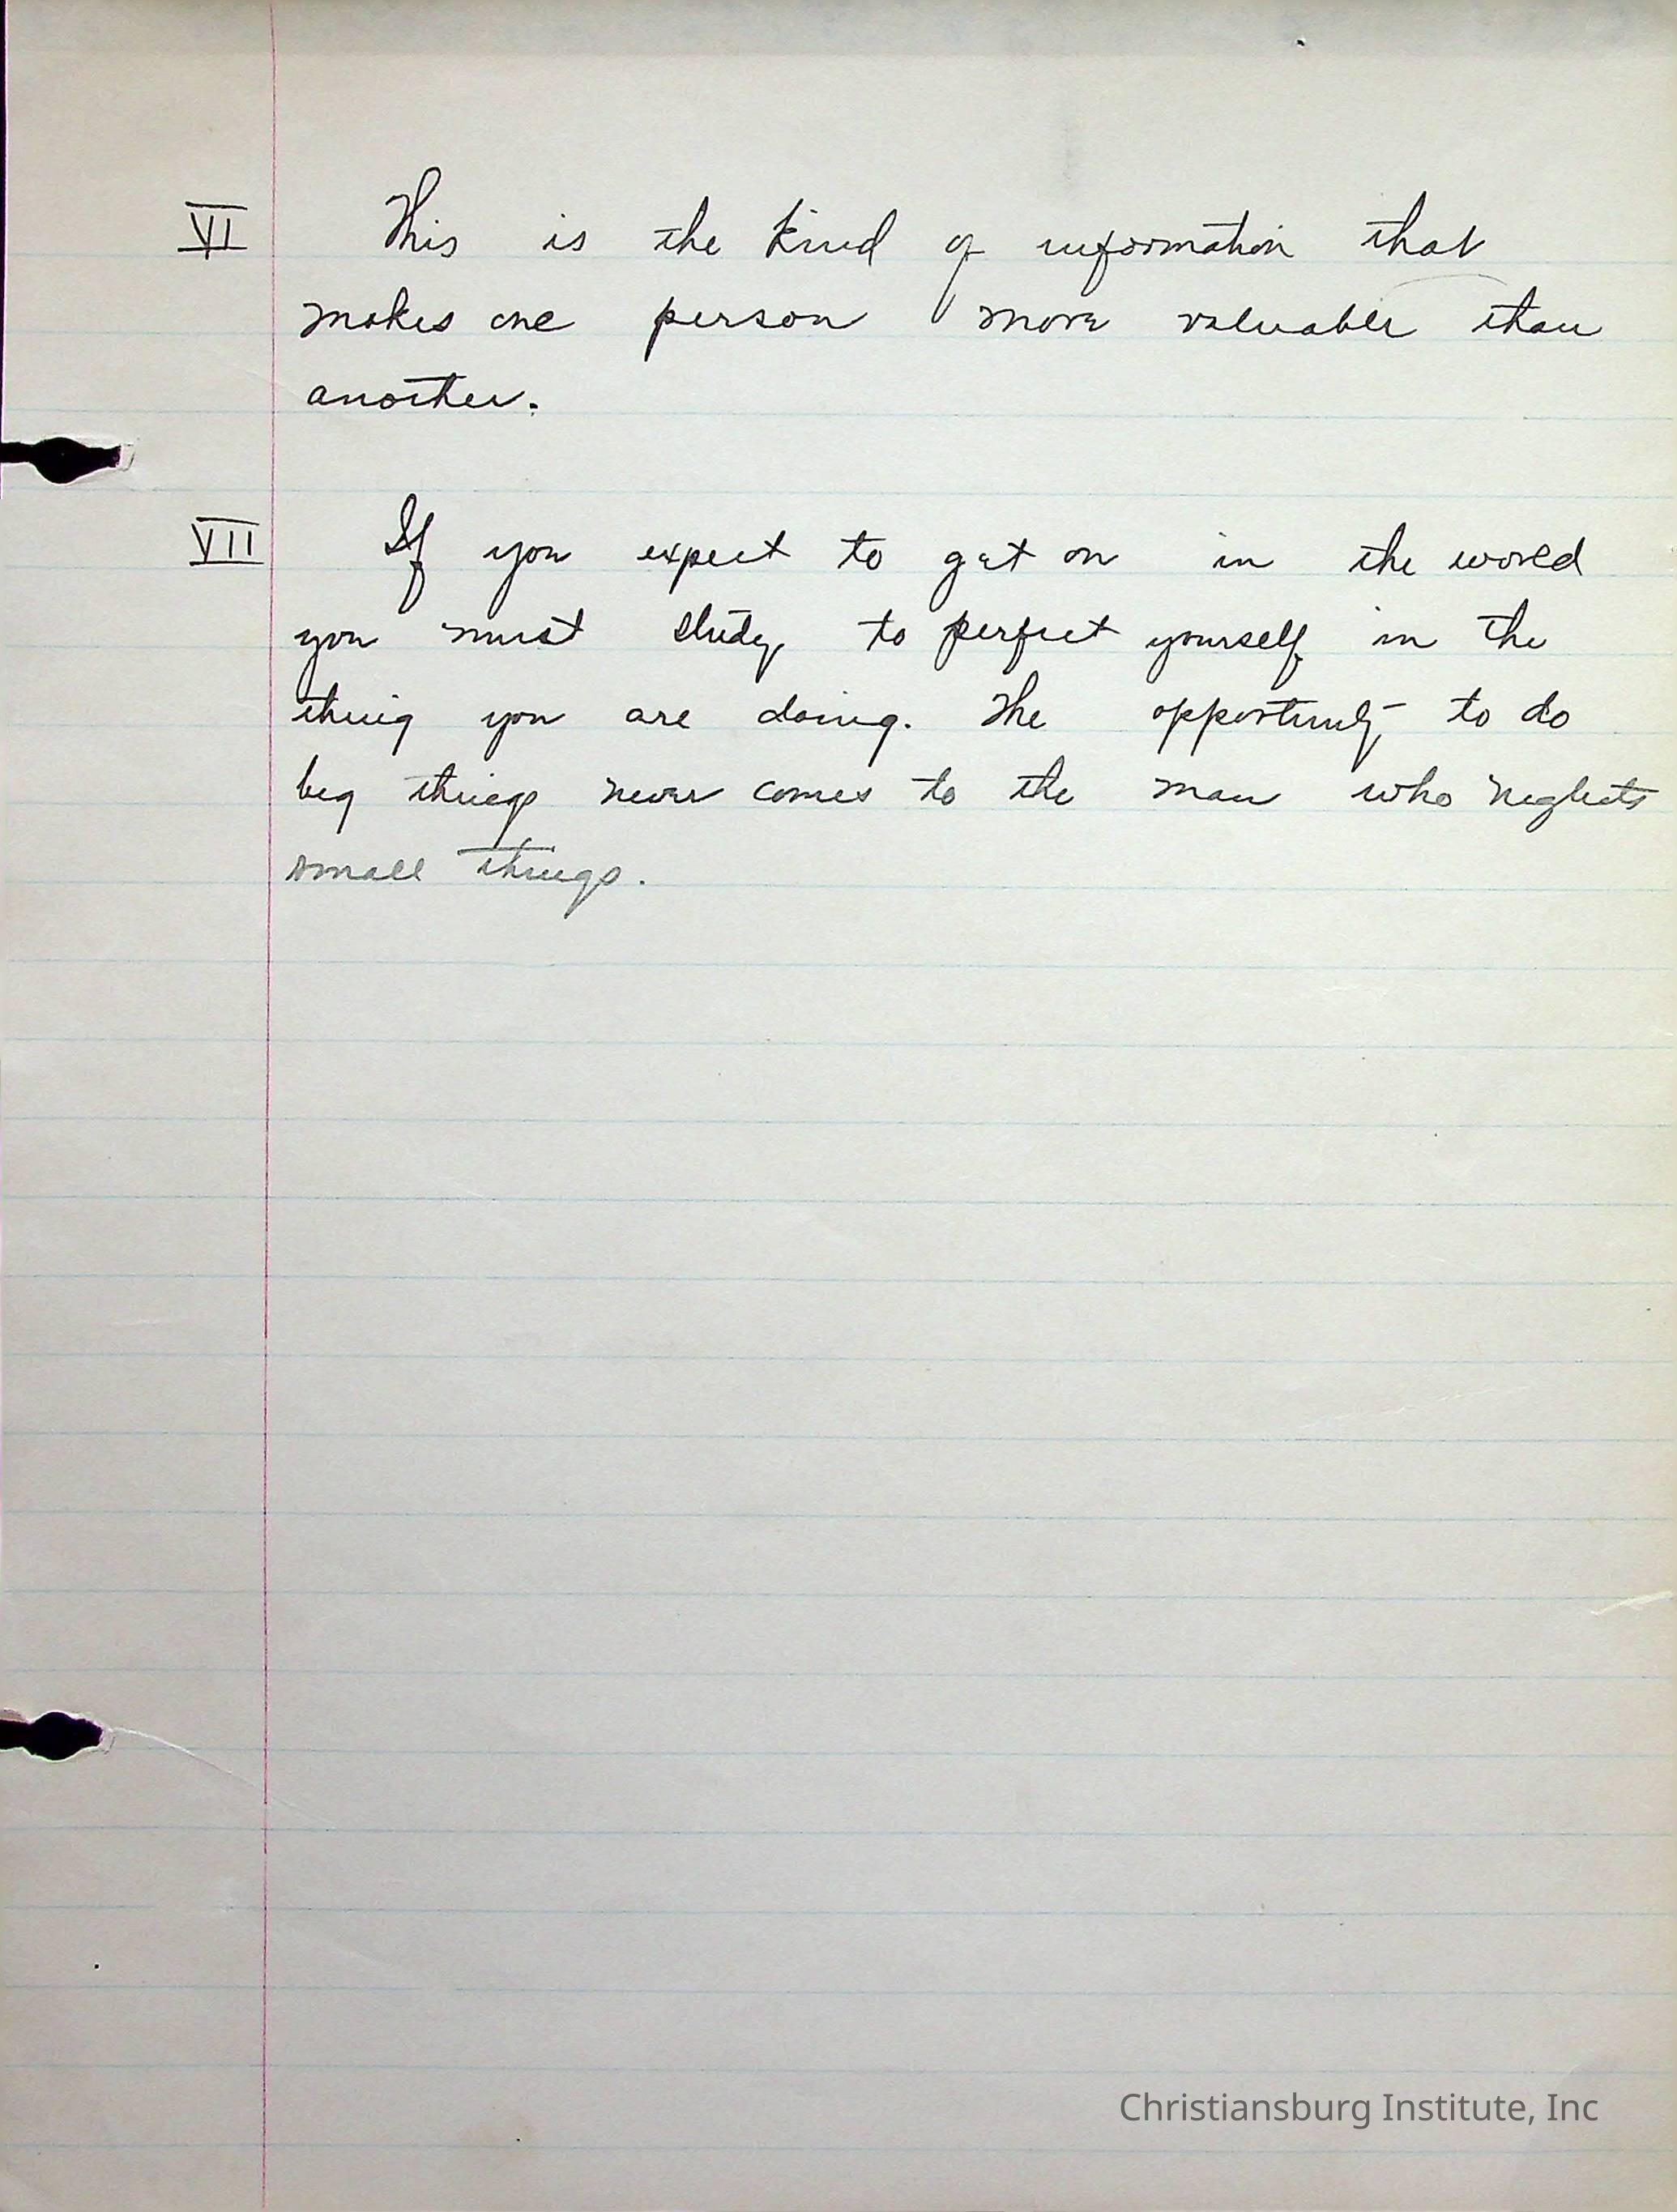 VI This is the kind of information that
makes one person more valuable than
another.
VII If you expect to get on in the world
you must study to perfect yourself in the
thing you are doing. The opportunity to do
big things never comes to the man who neglects
small things.
Christiansburg Institute, Inc